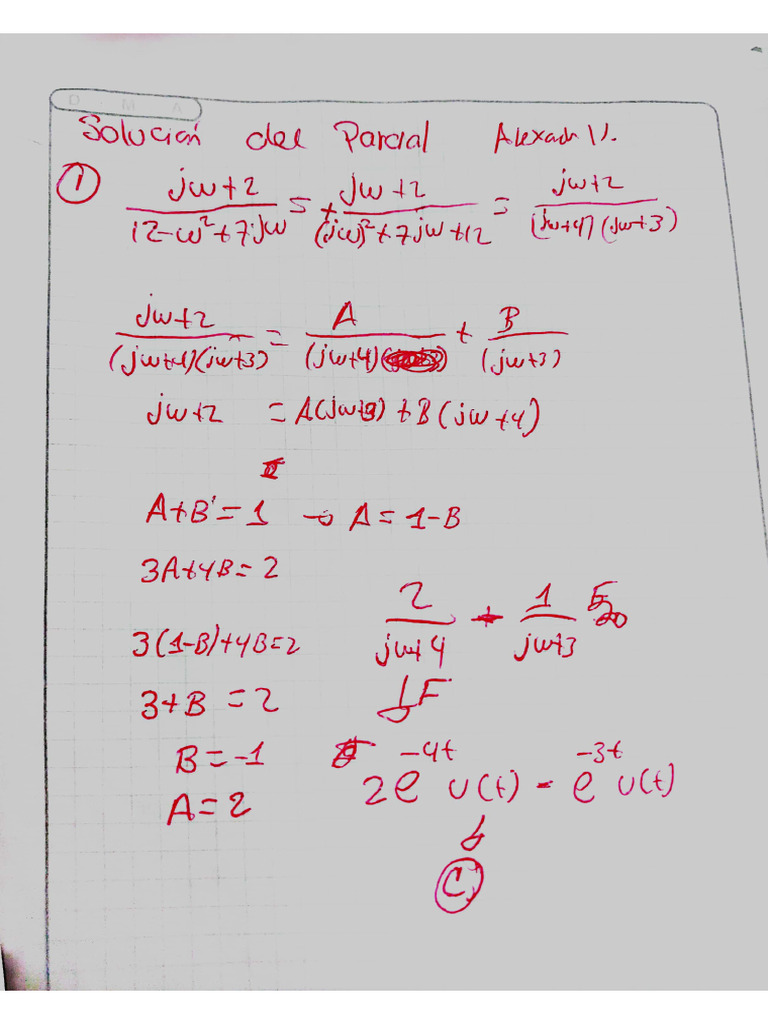 D M A
Solución del Parcial
① (jw+2)/(12-w²+7jw) = (jw+2)/((jw)²+7jw+12) = (jw+2)/((jw+4)(jw+3))
(jw+2)/((jw+4)(jw+3)) = A/(jw+4) + B/(jw+3)
jw+2 = A(jw+3) + B(jw+4)
A+B = 1 → A = 1-B
3A+4B = 2
3(1-B)+4B=2
3+B = 2
B=-1
A=2
2/(jw+4) - 1/(jw+3)
↓F
2e^-4t u(t) - e^-3t u(t)
↓
C